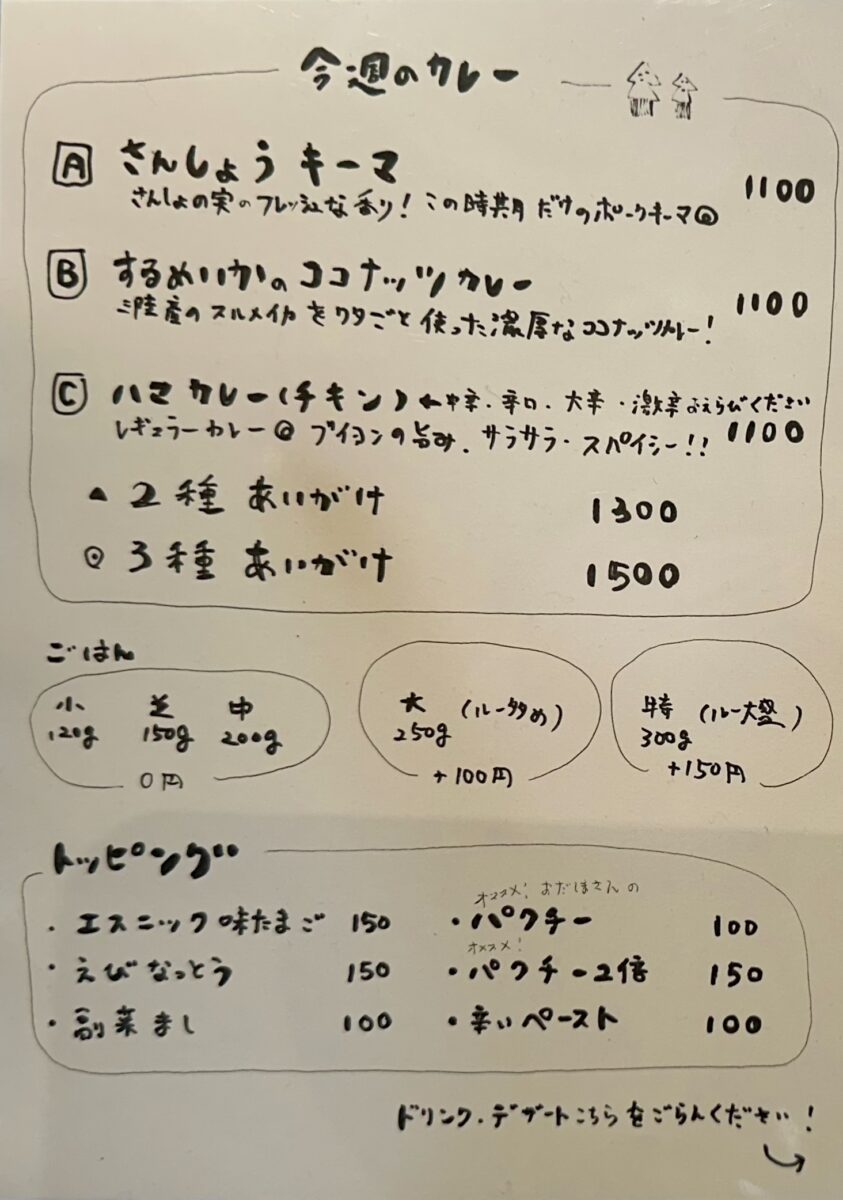 今週のカレー
A さんしょうキーマ 1100
さんしょの実のフレッシュな香り！この時期だけのポークキーマ◎
B するめいかのココナッツカレー 1100
三陸産のスルメイカをワタごと使った濃厚なココナッツカレー！
C ハマカレー(チキン)←中辛・辛口、大辛・激辛おえらびください
レギュラーカレー◎ ブイヨンの旨み、サラサラ・スパイシー!! 1100
▲ 2種あいがけ 1300
◎ 3種あいがけ 1500
ごはん
小 並 中 大 (ルー多め) 特 (ルー大盛)
120g 150g 200g 250g 300g
0円 +100円 +150円
トッピング
オススメ！おだしまさんの
・エスニック味たまご 150 ・パクチー 100
オススメ！
・えびなっとう 150 ・パクチー2倍 150
・副菜まし 100 ・辛いペースト 100
ドリンク・デザートこちらをごらんください！